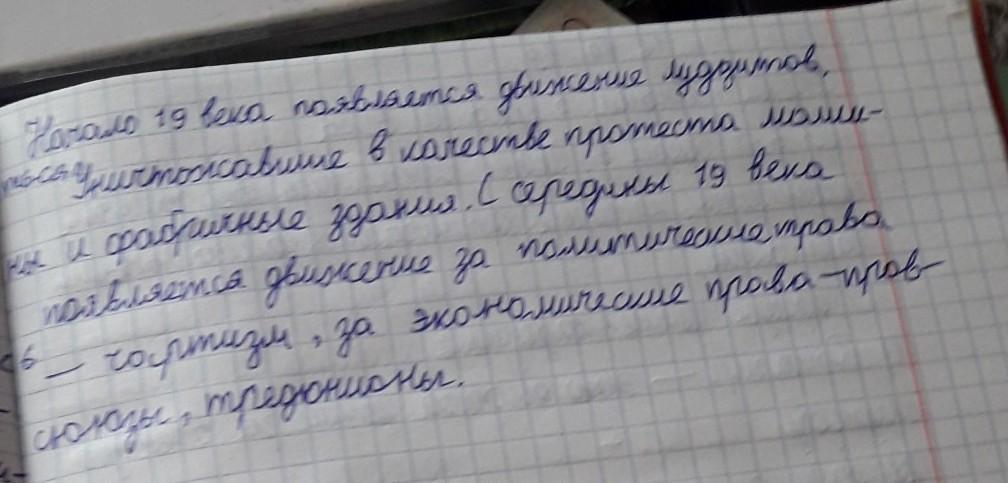 Начало 19 века появляется движение луддитов,
уничтожавшие в качестве протеста маши-
ны и фабричные здания. С середины 19 века
появляется движение за политические права
— чартизм, за экономические права - проф-
союзы, тредюнионы.